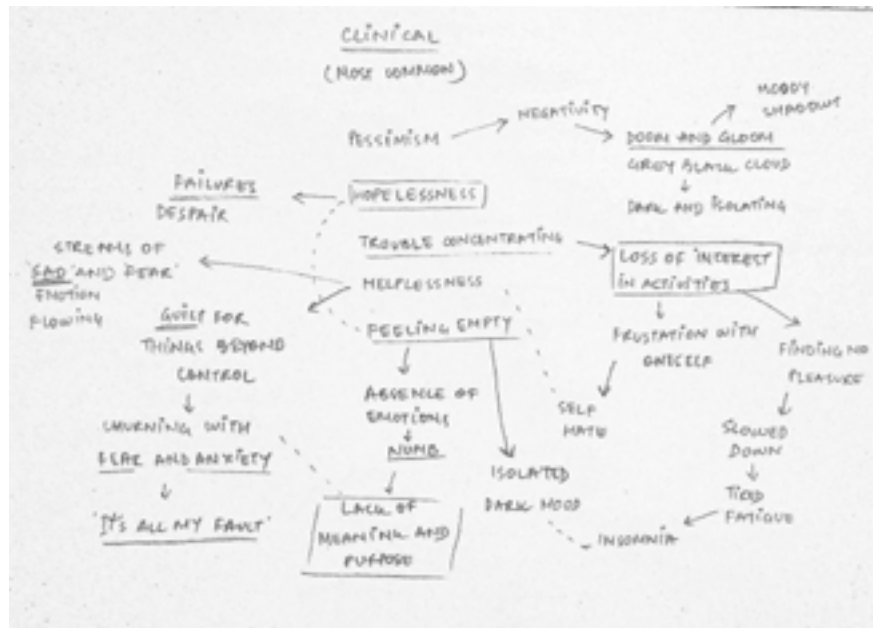 CLINICAL
(MOST COMMON)
PESSIMISM
NEGATIVITY
DOOM AND GLOOM
MOODY
SHADOWS
GREY BLACK CLOUD
DARK AND ISOLATING
HOPELESSNESS
FAILURES
DESPAIR
TROUBLE CONCENTRATING
LOSS OF INTEREST
IN ACTIVITIES
HELPLESSNESS
STREAMS OF
'SAD' AND FEAR'
EMOTION
FLOWING
GUILT FOR
THINGS BEYOND
CONTROL
CHURNING WITH
FEAR AND ANXIETY
'IT'S ALL MY FAULT'
FEELING EMPTY
ABSENCE OF
EMOTIONS
NUMB
LACK OF
MEANING AND
PURPOSE
ISOLATED
DARK MOOD
FRUSTATION WITH
ONESELF
SELF
HATE
FINDING NO
PLEASURE
SLOWED
DOWN
TIRED
FATIGUE
INSOMNIA